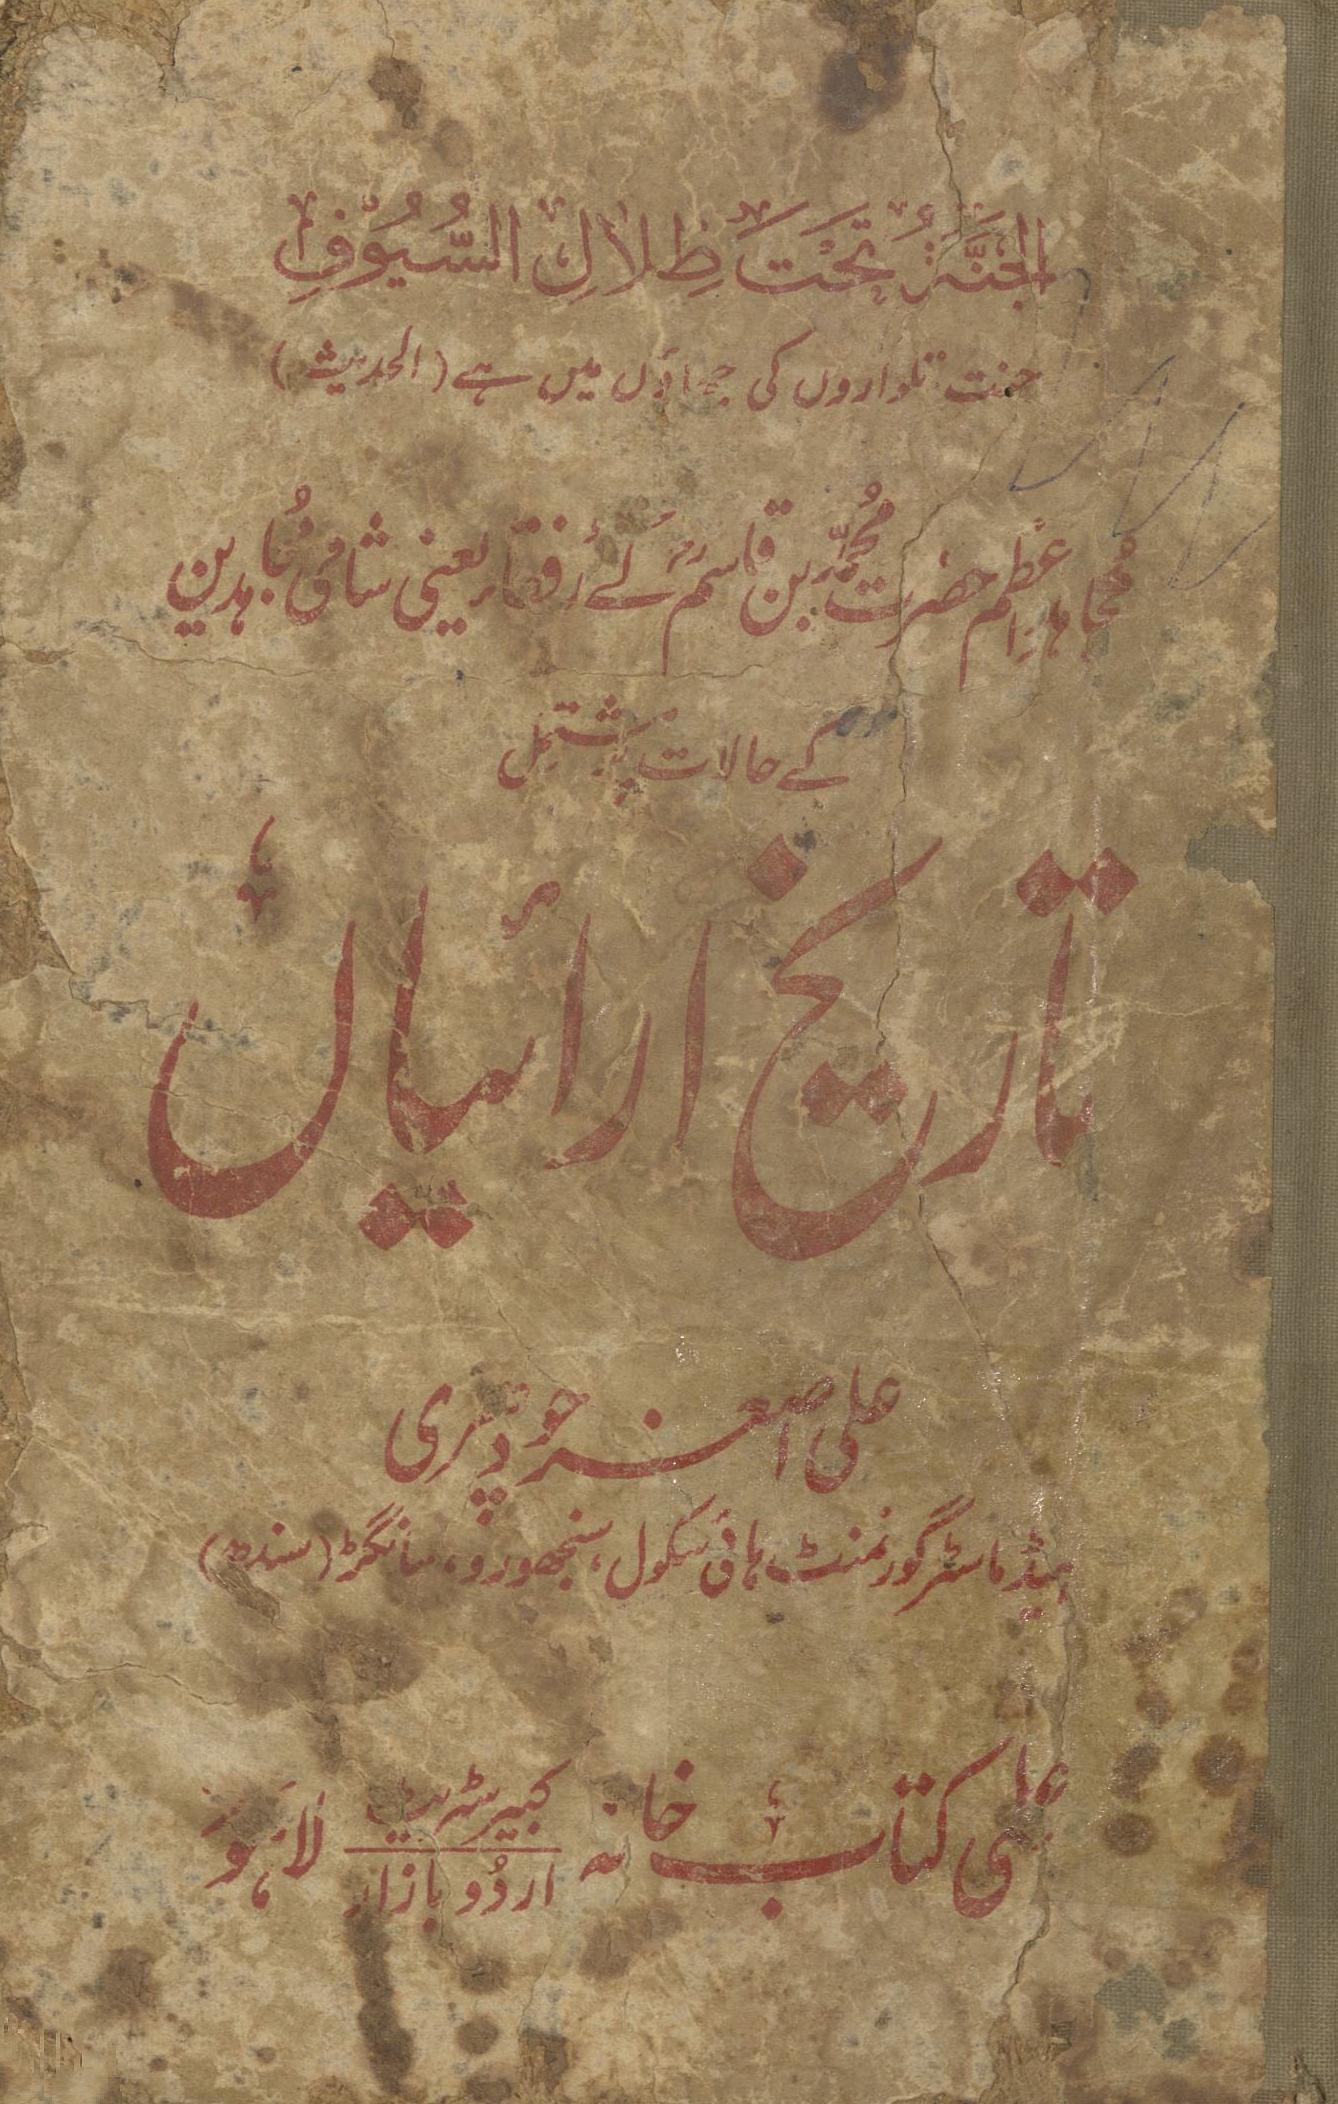 الجَنَّۃُ تَحْتَ ظِلَالِ السُّیُوْفِ
جنت تلواروں کی چھاؤں میں ہے (الحدیث)
مُجاہدِ اعظم حضرت مُحمّد بن قاسمؒ کے رُفقاء یعنی شامی مُجاہدین
کے حالات پر مشتمِل
تاریخ ارائیاں
علی اصغر چودھری
ہیڈ ماسٹر گورنمنٹ ہائی سکول، سنجھورو، سانگھڑ (سندھ)
علمی کتاب خانہ کبیر سٹریٹ اردُو بازار لاہور